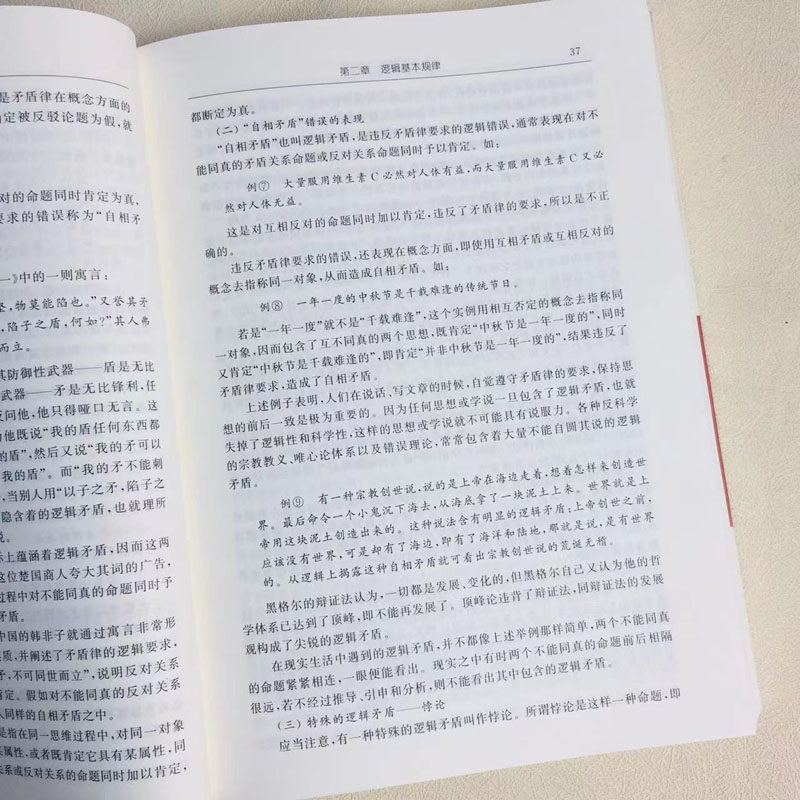 是矛盾律在概念方面的
定被反驳论题为假,就
对的命题同时肯定为真,
要求的错误称为“自相矛
一》中的一则寓言:
坚,物莫能陷也。”又誉其矛
,陷子之盾,何如?”其人弗
而立。
其防御性武器——盾是无比
武器——矛是无比锋利,任
反问他,他只得哑口无言。这
为他既说“我的盾任何东西都
的盾”,然后又说“我的矛可以
的盾”。而“我的矛不能刺
,当别人用“以子之矛,陷子之
隐含着的逻辑矛盾,也就理所
说。
际上蕴涵着逻辑矛盾,因而这两
这位楚国商人夸大其词的广告,
过程中对不能同真的命题同时予
矛盾。
中国的韩非子就通过寓言非常形
质,并阐述了矛盾律的逻辑要求,
矛,不可同世而立”,说明反对关系
肯定。假如对不能同真的反对关系
人同样的自相矛盾之中。
是指在同一思维过程中,对同一对象
某属性,或者既肯定它具有某属性,同
关系或反对关系的命题同时加以肯定,
第二章 逻辑基本规律 37
都断定为真。
(二)“自相矛盾”错误的表现
“自相矛盾”也叫逻辑矛盾,是违反矛盾律要求的逻辑错误,通常表现在对不
能同真的矛盾关系命题或反对关系命题同时予以肯定。如:
例⑦ 大量服用维生素C必然对人体有益,而大量服用维生素C又必
然对人体无益。
这是对互相反对的命题同时加以肯定,违反了矛盾律的要求,所以是不正
确的。
违反矛盾律要求的错误,还表现在概念方面,即使用互相矛盾或互相反对的
概念去指称同一对象,从而造成自相矛盾。如:
例⑧ 一年一度的中秋节是千载难逢的传统节日。
若是“一年一度”就不是“千载难逢”,这个实例用相互否定的概念去指称同
一对象,因而包含了互不同真的两个思想,既肯定“中秋节是一年一度的”,同时
又肯定“中秋节是千载难逢的”,即肯定“并非中秋节是一年一度的”,结果违反了
矛盾律要求,造成了自相矛盾。
上述例子表明,人们在说话、写文章的时候,自觉遵守矛盾律的要求,保持思
想的前后一致是极为重要的。因为任何思想或学说一旦包含了逻辑矛盾,也就
失掉了逻辑性和科学性,这样的思想或学说就不可能具有说服力。各种反科学
的宗教教义、唯心论体系以及错误理论,常常包含着大量不能自圆其说的逻辑
矛盾。
例⑨ 有一种宗教创世说,说的是上帝在海边走着,想着怎样来创造世
界。最后命令一个小鬼沉下海去,从海底拿了一块泥土上来。世界就是上
帝用这块泥土创造出来的。这种说法含有明显的逻辑矛盾:上帝创世之前,
应该没有世界,可是却有了海边,即有了海洋和陆地,那就是说,是有世界
的。从逻辑上揭露这种自相矛盾就可看出宗教创世说的荒诞无稽。
黑格尔的辩证法认为,一切都是发展、变化的,但黑格尔自己又认为他的哲
学体系已达到了顶峰,即不能再发展了。顶峰论违背了辩证法,同辩证法的发展
观构成了尖锐的逻辑矛盾。
在现实生活中遇到的逻辑矛盾,并不都像上述举例那样简单,两个不能同真
的命题紧紧相连,一眼便能看出。现实之中有时两个不能同真的命题前后相隔
很远,若不经过推导、引申和分析,则不能看出其中包含的逻辑矛盾。
(三)特殊的逻辑矛盾——悖论
应当注意,有一种特殊的逻辑矛盾叫作悖论。所谓悖论是这样一种命题,即